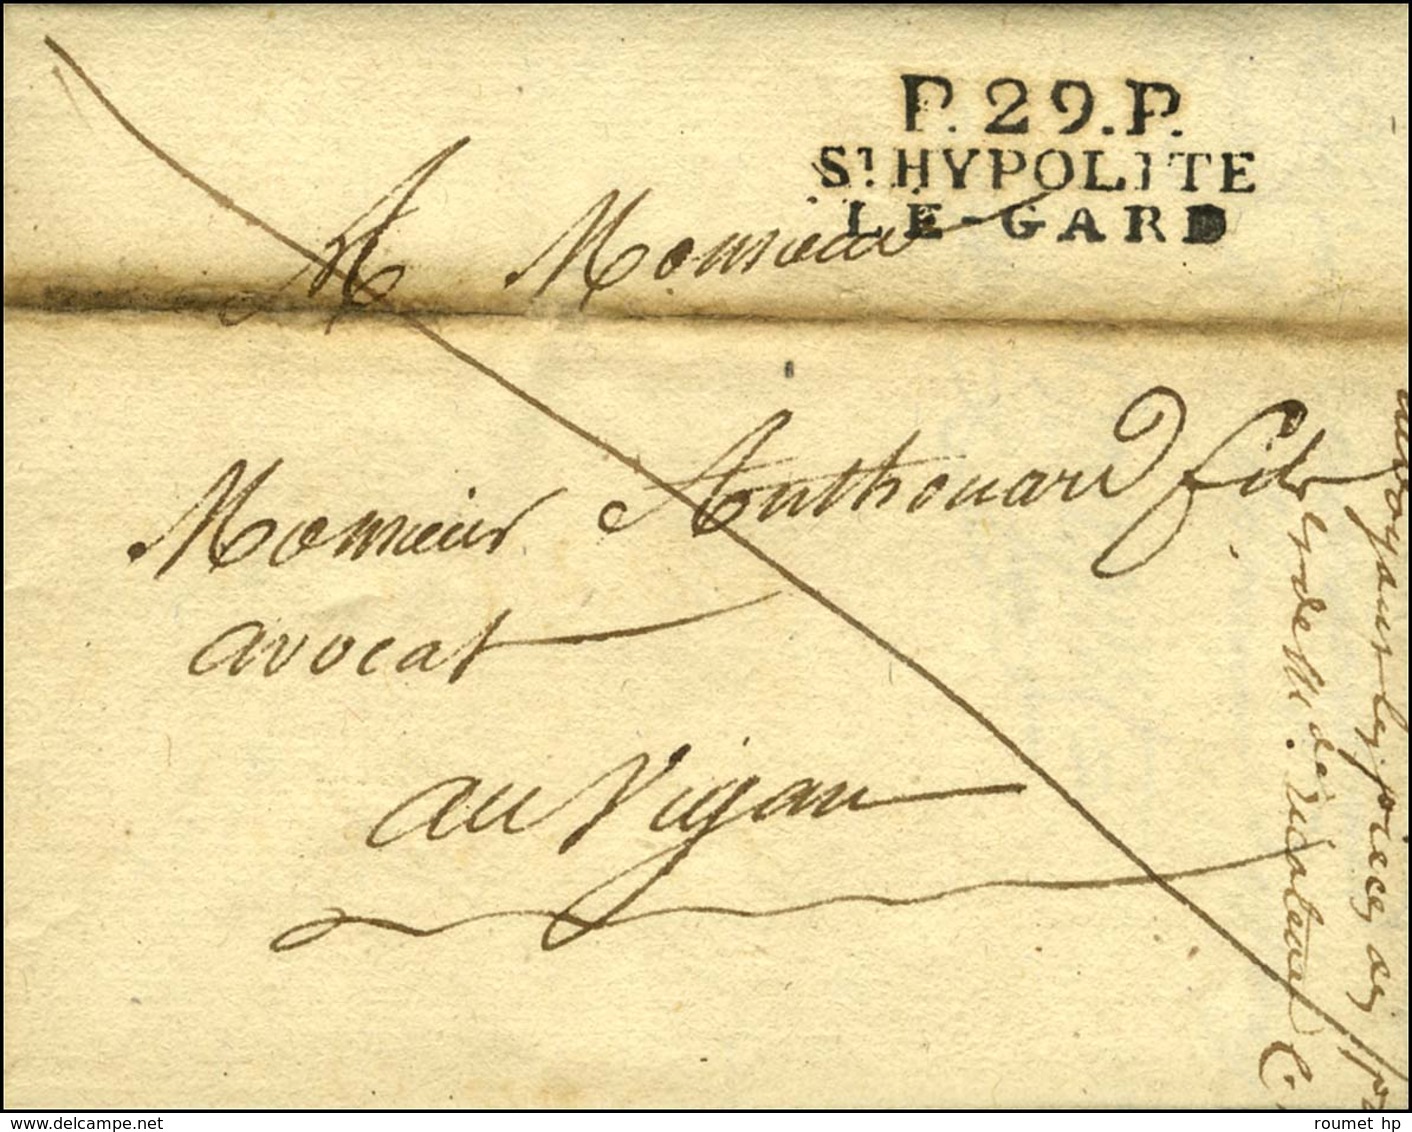 P.29.P.
St HYPOLITE
LE-GARD
A Monsieur
Monsieur Anthouard fils
avocat
au Vigan
les pieces des
de M. de
roumet hp